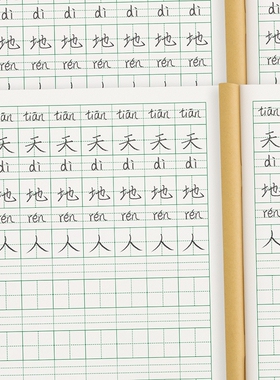 dì dì dì dì dì dì dì
地 地 地 地 地 地 地
rén rén rén rén rén rén rén
tiān tiān tiān tiān tiān tiān tiān
天 天 天 天 天 天 天
dì dì dì dì dì dì dì
地 地 地 地 地 地 地
rén rén rén rén rén rén rén
人 人 人 人 人 人 人
dì
地
rén
tiān
天
dì
地
rén
人